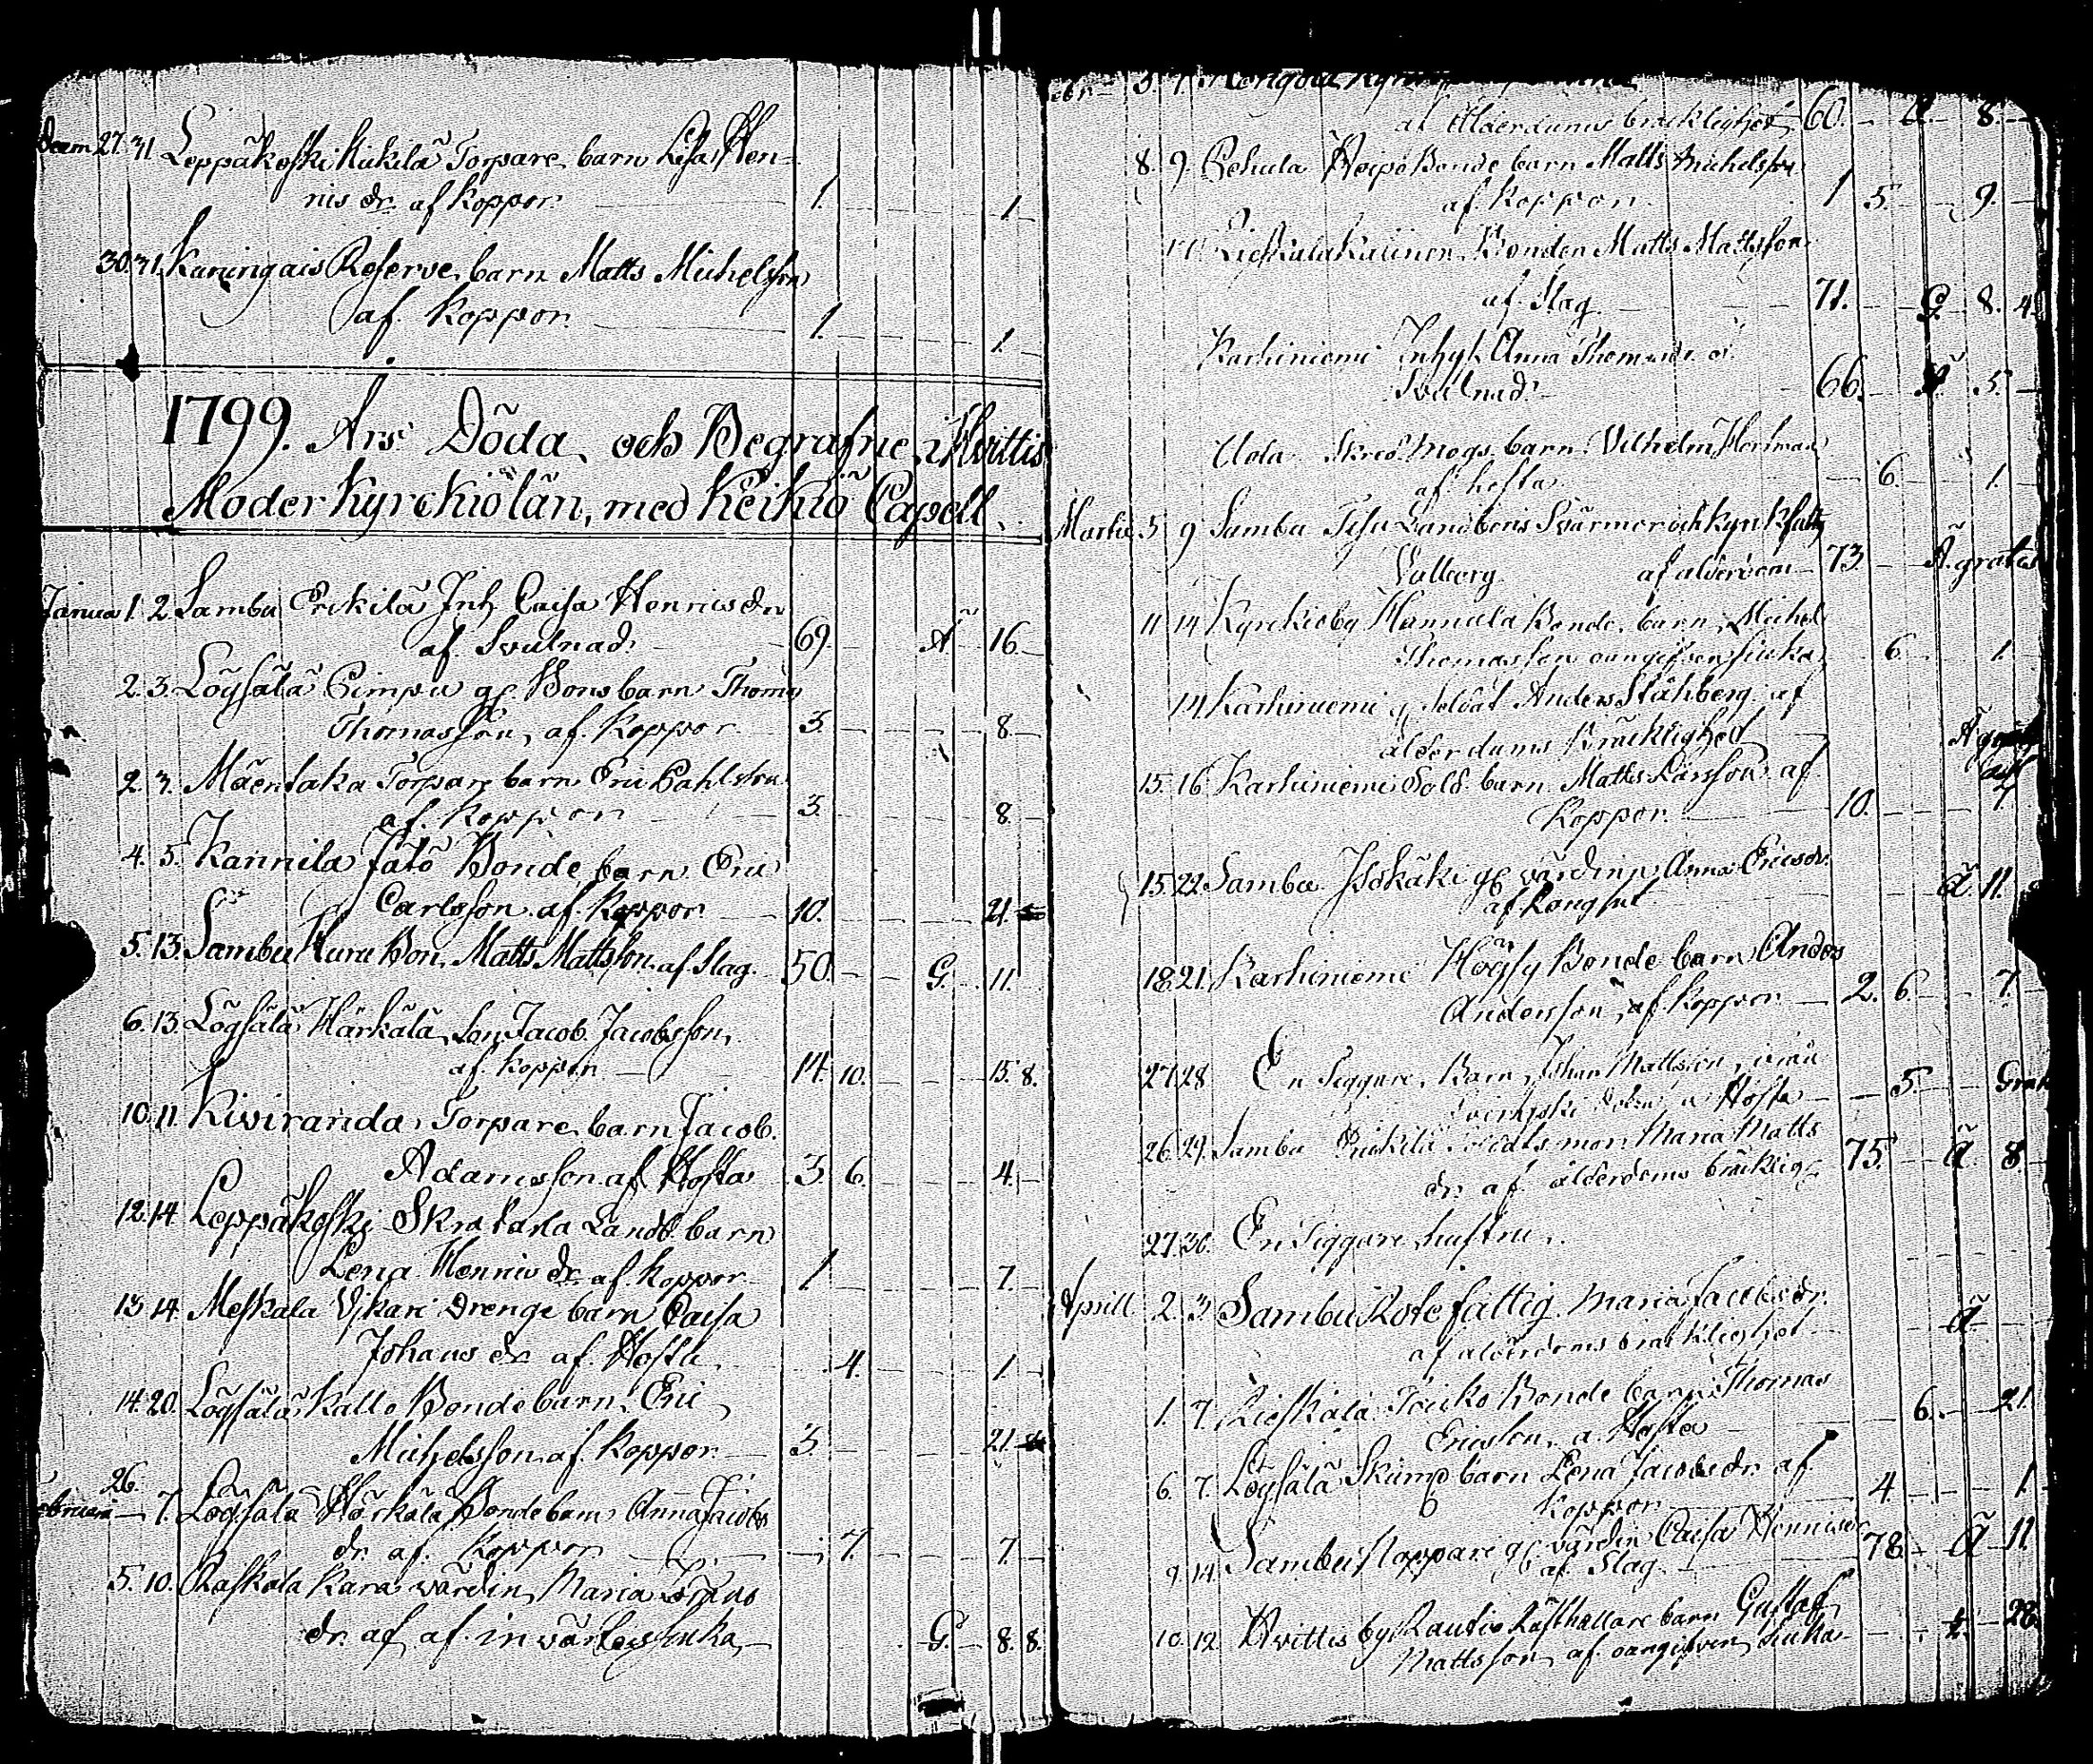 Decem 27. 31. Leppäkoski Kukila Torpare barn Lisa Hen-
ris dr. af koppor 1. 1.
30. 31. Kaningais Reserve barn Matts Michelsson
af koppor 1. 1.
1799. Års Döda och Begrafne i Hvittis
Moder Kyrckiolän, med Keikiö Capell.
Janua 1. 2. Sambu Erkilä Inh. Caisa Henrics dr.
af Svulnad 69. Ä 16.
2. 3. Löysälä Pimpu gl. Bons barn Thomas
Thomasson, af koppor 3. 8.
2. 3. Mäentaka Torpare barn Eric Dahlstrm
af koppor 3. 8.
4. 5. Kannila Jato Bonde barn Eric
Carlsson af koppor 10. 21.
5. 13. Sambu Huru Bon. Matts Mattsson af slag 50. G. 11.
6. 13. Löysälä Härkälä Son Jacob Jacobsson,
af koppor 14. 10. 15. 8.
10. 11. Kiviranda Torpare barn Jacob
Adamsson af Hosta 3. 6. 4.
12. 14. Leppäkoski Skratarla Landb. barn
Lena Henrics dr. af koppor 1. 7.
13. 14. Meskala Vikari Drenge barn Caisa
Johans dr. af Hosta 4. 1.
14. 20. Löysälä Kallo Bonde barn Eric
Michelsson af koppor 3. 21.
26.
ebruari 7. Löysälä Härkälä Bonde barn Anna Jacobs
dr. af koppor 7. 7.
5. 10. Raskala Kara värdin Maria
dr. af af invärtes siuka G. 8. 8.
af Ålderdoms bräcklighet 60. Ä 8.
8. 9. Pehula Hoipo Bonde barn Matts Michelsson
af koppor 1 5. 9.
Rieskala Kauinen Bonden Matts Mattsson
af slag 71. G. 8. 4.
Karhiniemi Inhys. Anna Thomas dr. af
Svulnad 66. 5.
Uola Skred. mogs. barn Vilhelm Hertman
af hosta 6. 1.
Martii 5 9 Sambu Landboens Svärmor och
af ålderdom 73 Ä gratis
11 14 Kyrckioby Hannula Bonde barn Michel
Thomasson oangifven siuka 6. 1.
14. Karhiniemi g. Soldat Anders Ståhberg af
ålderdoms Bräcklighet Ä
15. 16 Karhiniemi Sold. barn Matts Larsson af
koppor 10. 7
15. 22. Sambu Isokäki gl. värdin Anna Ericsdr.
af Ä 11.
18. 21. Karhiniemi Höysy Bonde barn Anders
Andersson, af koppor 2. 6. 7.
27 28 En Tiggare Barn, Johan Mattsson,
af Hosta 5. Grat
26. 29. Sambu Soldats mor Maria Matts
dr. af ålderdoms bräcklig 75. Ä 8.
27. 30. En Tiggare hustru.
Aprill 2. 3 Sambu Rote fattig Maria Jacobs dr.
af ålderdoms bräcklighet Ä
1. 7. Rieskala Bonde barn Thomas
Ericsson, a Hosta 6. 21.
6. 7. Löysälä Skump barn Lena Jacobs dr. af
koppor 4. 1.
9. 14. Sambu gl. värdin Caisa Henrics dr.
af slag 78. Ä 11
10. 12 Hvittis by Rautio Rusthållare barn Gustaf
Mattsson, af oangifven siuka 28.